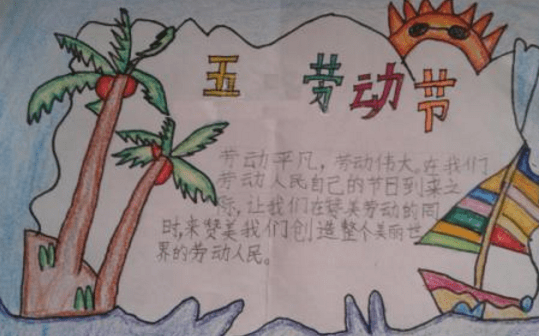 五 劳动节
劳动平凡，劳动伟大。在我们
劳动人民自己的节日到来之
际，让我们在赞美劳动的同
时，来赞美我们创造整个美丽世
界的劳动人民。